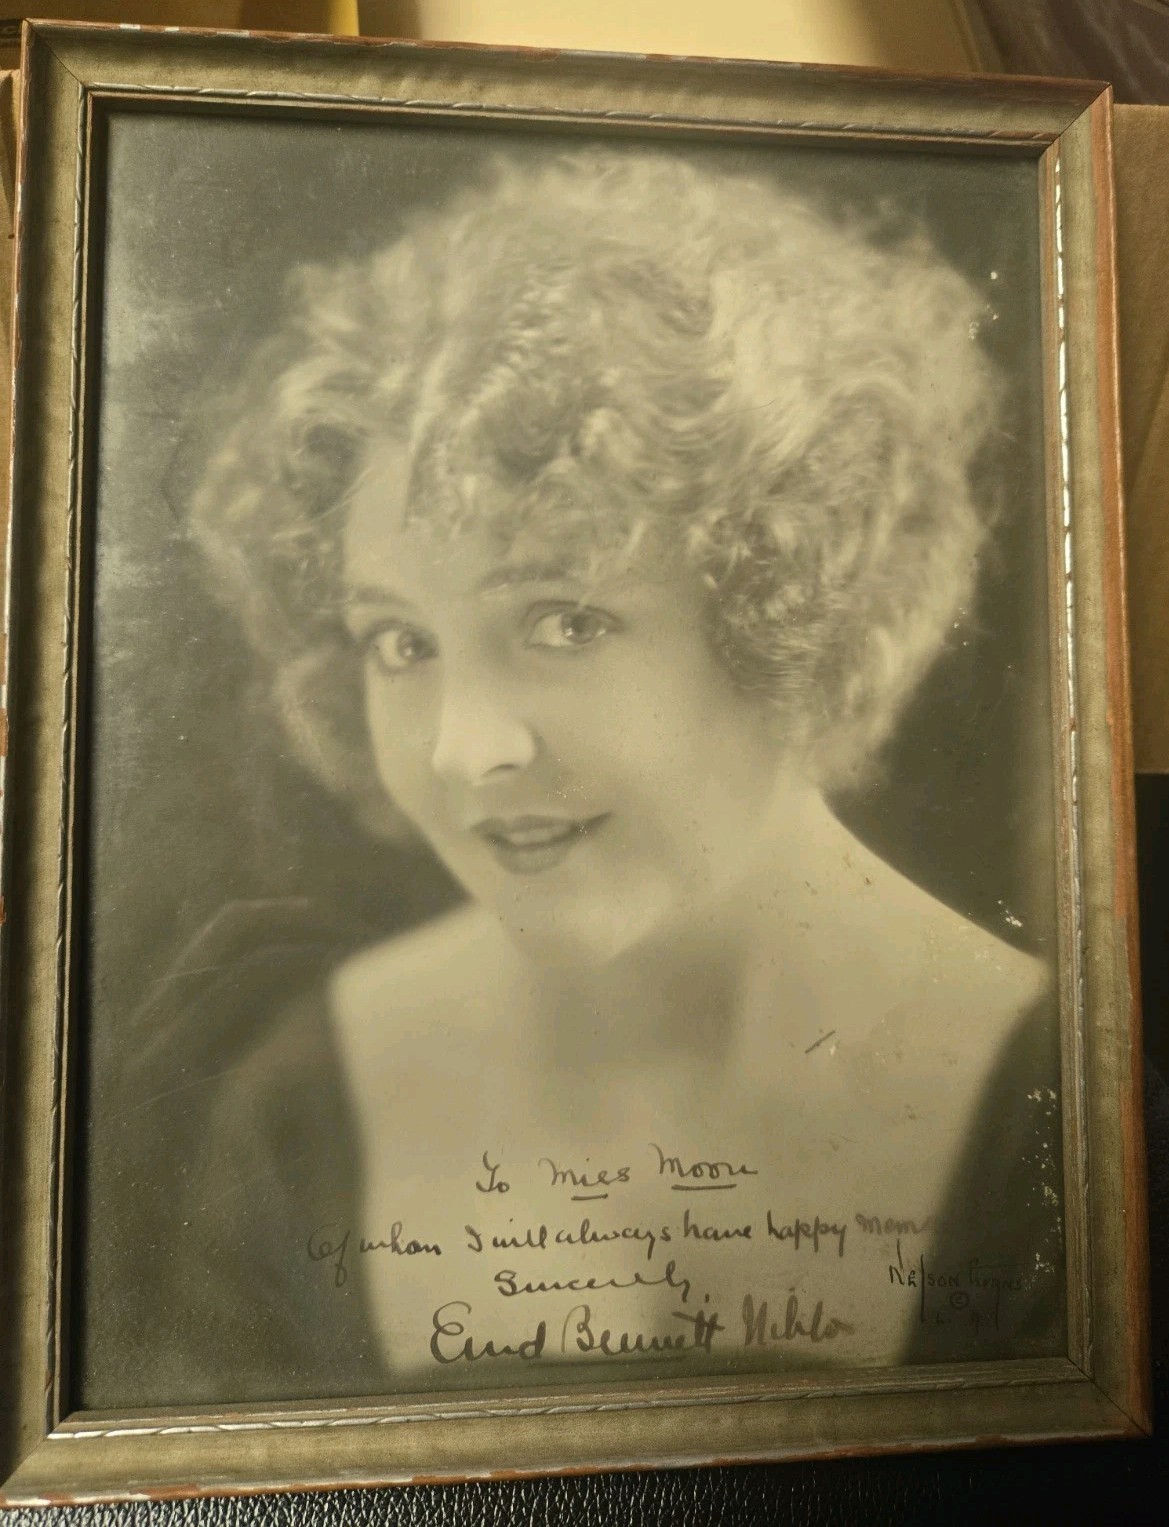 To Miss Moon
Of whom I will always have happy mem
Sincerely,
Enid Bennett Niblo
Nelson Evans
©
L.A.